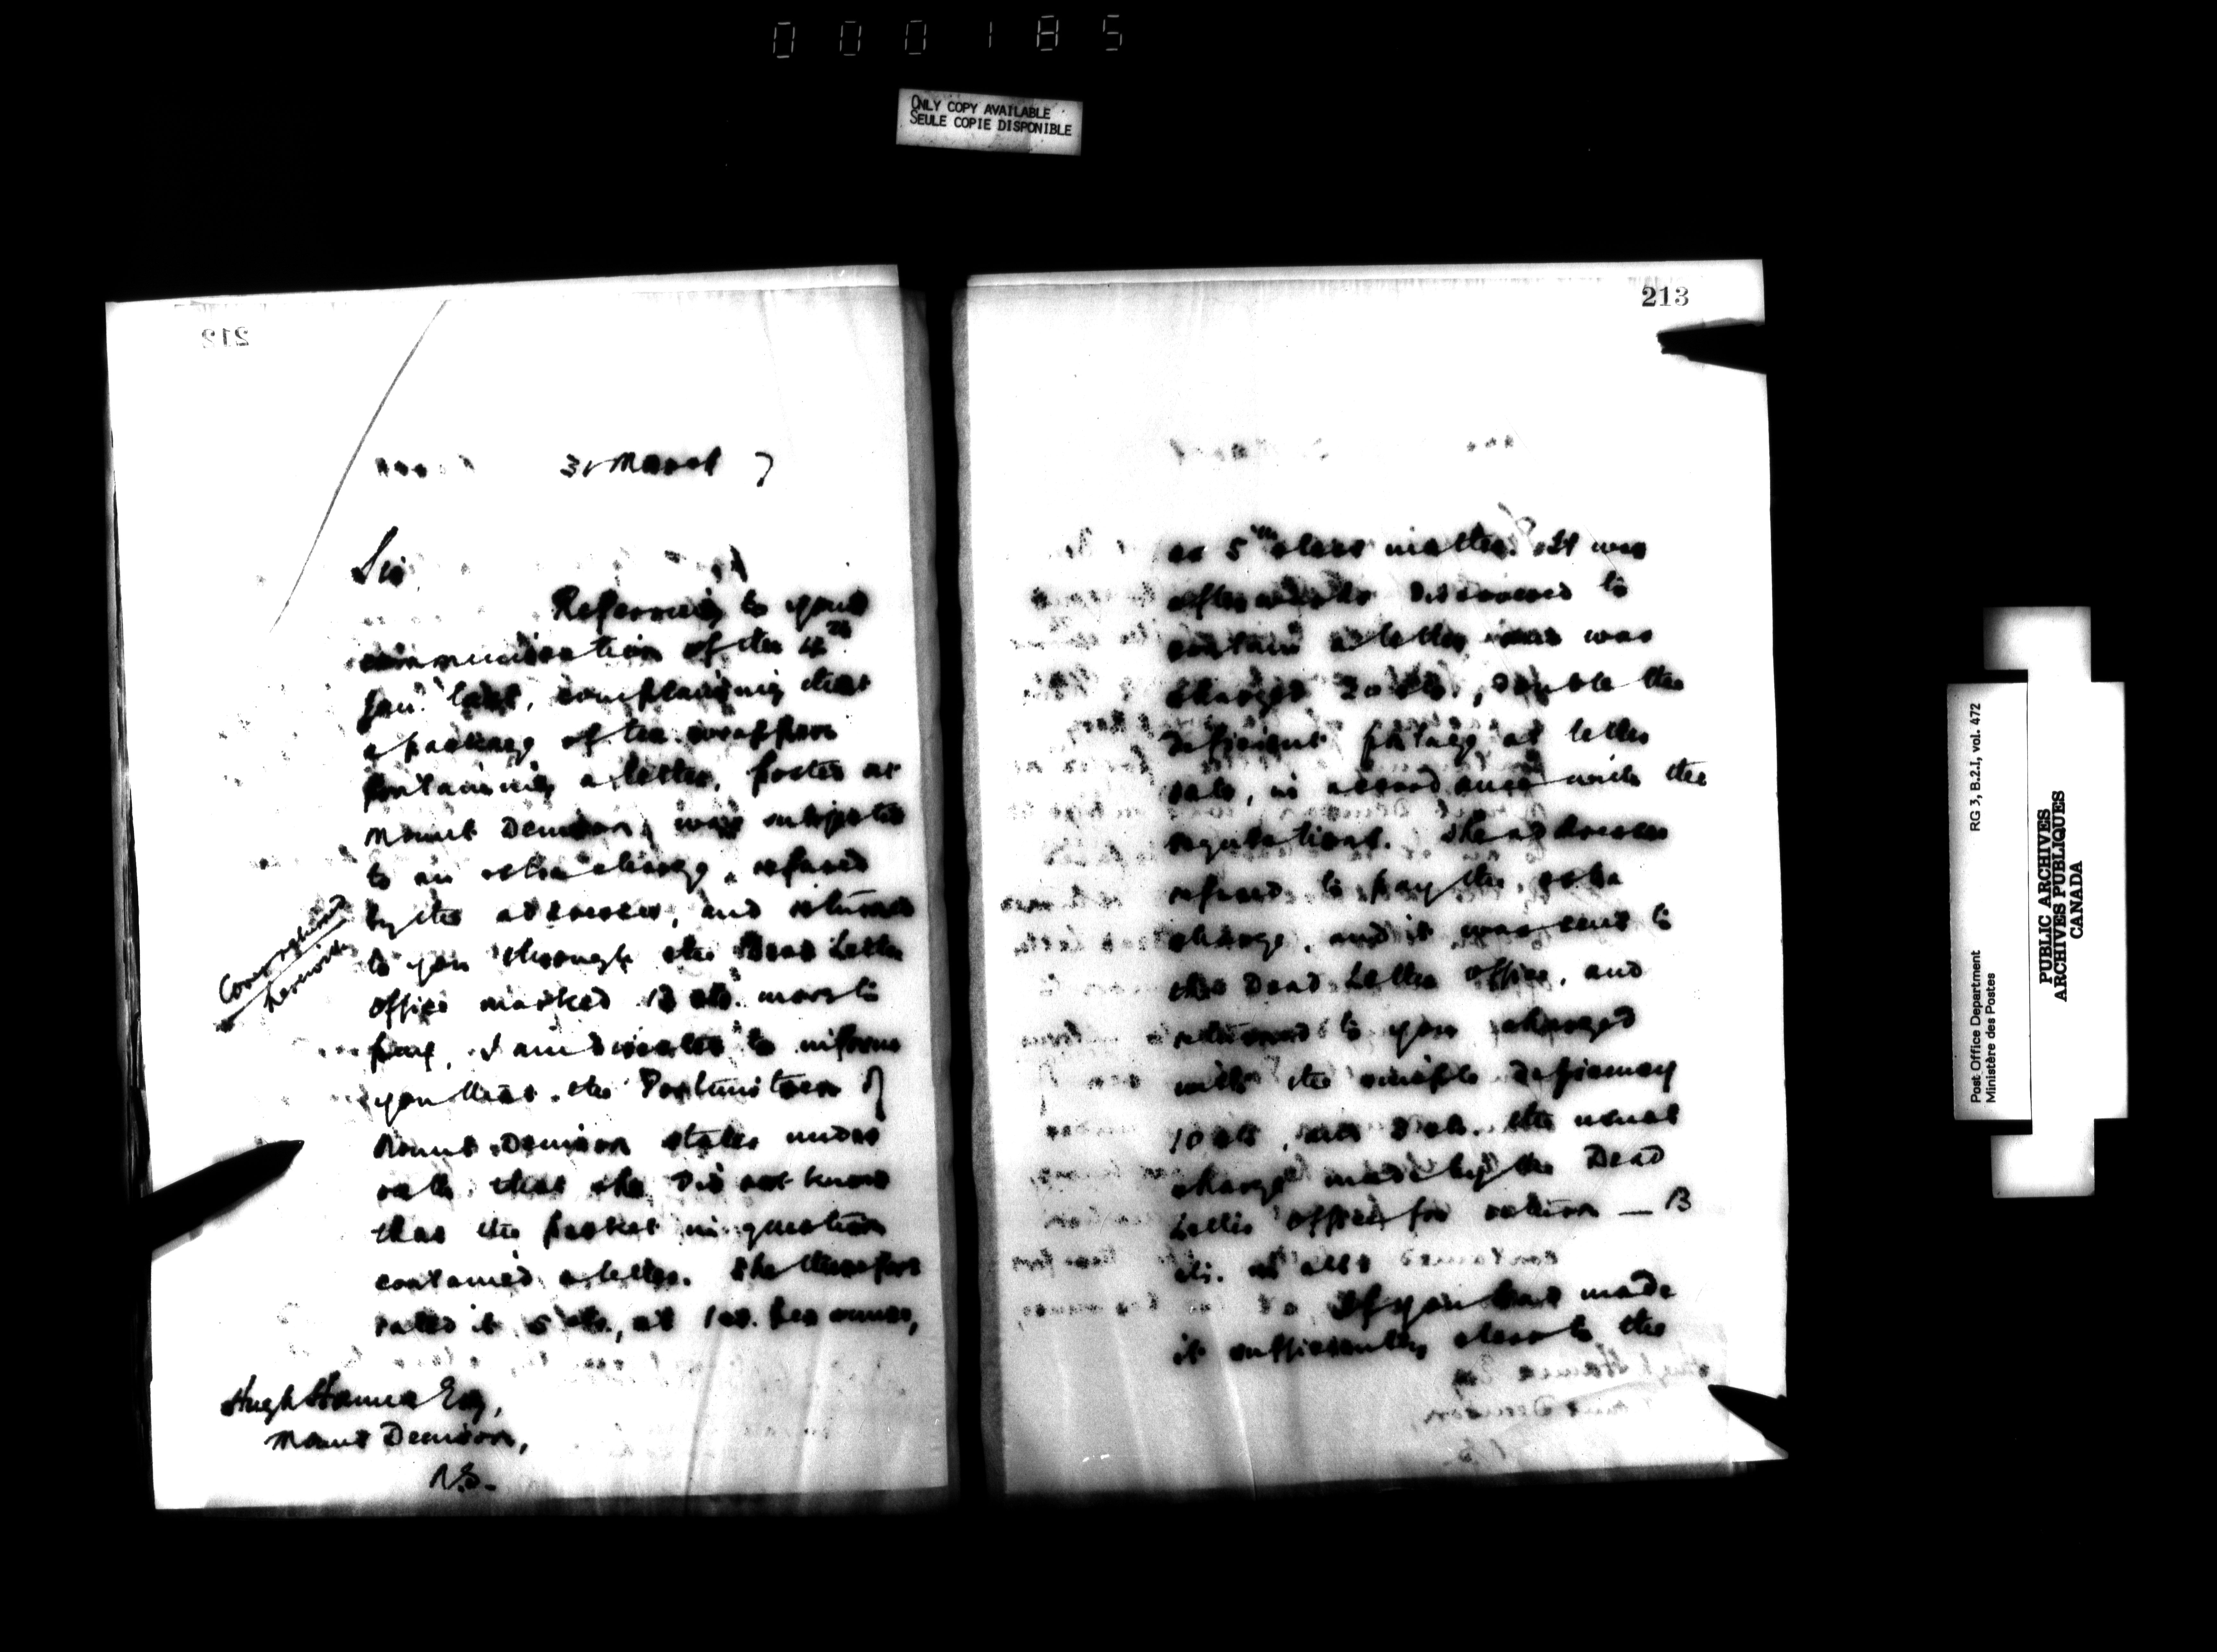 000185
ONLY COPY AVAILABLE
SEULE COPIE DISPONIBLE
212
31 March 7
Sir
Referring to your
communication of the 4th
Jan. last, complaining that
a package of tea
containing a letter, posted at
Mount Denison, was subjected
to an extra charge, refused
by the addressee, and returned
to you through the Dead Letter
Office marked 13 cts. more to
pay, I am directed to inform
you that the Postmistress of
Mount Denison states under
oath that she did not know
that the packet in question
contained a letter. She therefore
rated it 5 cts., at 1 ct. per ounce,
Hugh Hanna Esq,
Mount Denison,
N.S.
213
as 5th class matter. It was
afterwards discovered to
contain a letter, and was
charged 20 cts., double the
deficient postage at letter
rate, in accordance with the
regulations. The addressee
refused to pay the extra
charge, and it was sent to
the Dead Letter Office, and
returned to you charged
with the simple deficiency
10 cts, and 3 cts. the usual
charge made by the Dead
Letter Office for return — 13
cts. in all.
If you had made
it sufficiently clear to the
Post Office Department
Ministère des Postes
RG 3, B.2.I, vol. 472
PUBLIC ARCHIVES
ARCHIVES PUBLIQUES
CANADA